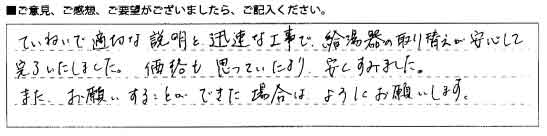 ■ご意見、ご感想、ご要望がございましたら、ご記入ください。
ていねいで適切な説明と迅速な工事で、給湯器の取り替えが安心して
完了いたしました。価格も思っていたより、安くすみました。
また、お願いすることができた場合は、よろしくお願いします。